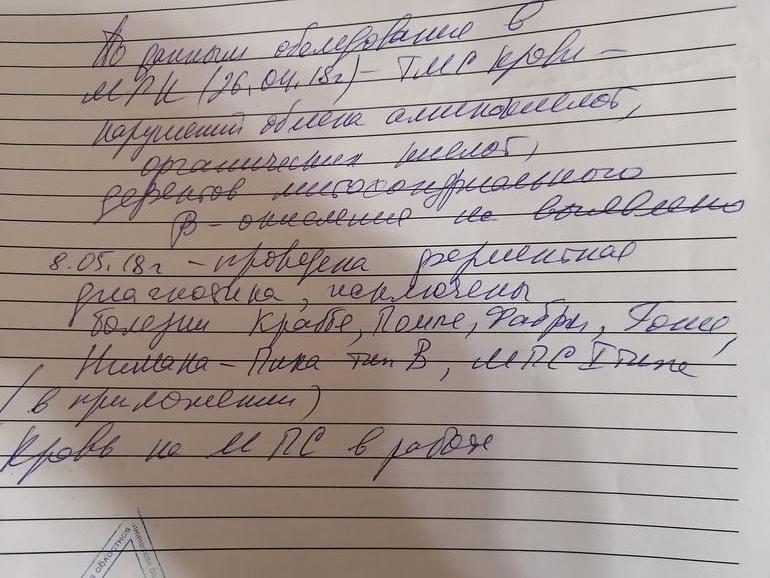 По данным обследования в
МГК (26.04.18г) - ТМС крови -
нарушений обмена аминокислот,
органических кислот,
дефектов митохондриального
β-окисления не выявлено
8.05.18г - проведена ферментная
диагностика, исключены
болезни Краббе, Помпе, Фабри, Гоше,
Нимана-Пика тип В, МПС I типа
(в приложении)
Кровь на МПС в работе